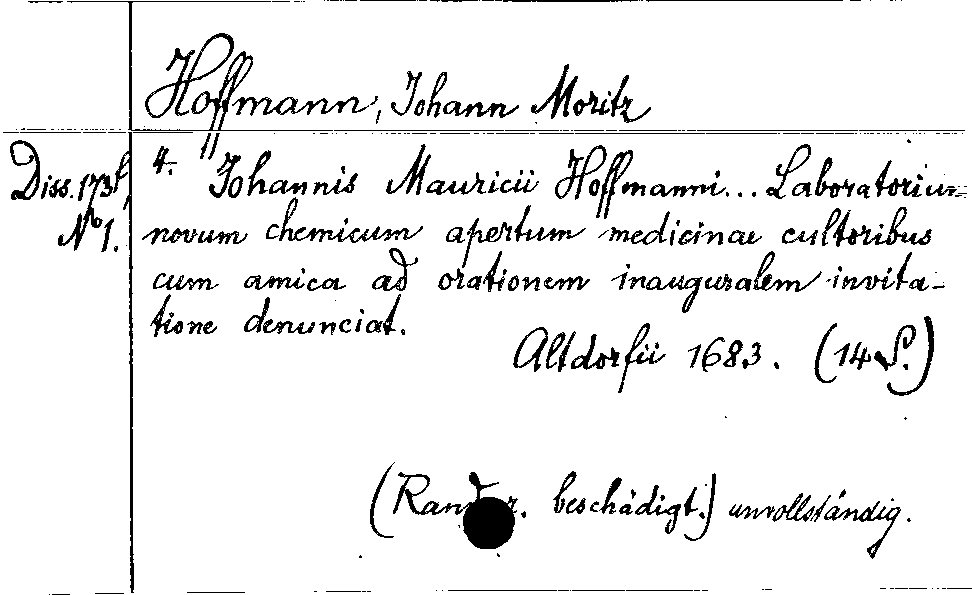 Hoffmann, Johann Moritz
Diss. 173f,
No 1.
4. Johannis Mauricii Hoffmanni... Laboratorium
novum chemicum apertum medicinae cultoribus
cum amica ad orationem inauguralem invita-
tione denunciat.
Altdorfii 1683. (14 S.)
beschädigt.) unvollständig.